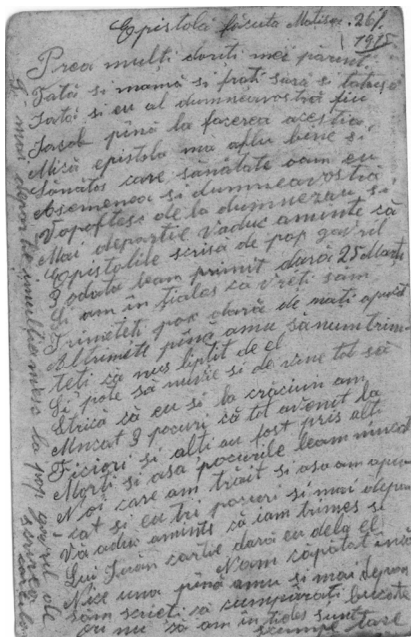 Epistolă făcuta Matisa 26/
1915
Prea mulți doriti mei părinți
Tată si mamă si frați sura si tatuso
Iatăi si eu al dumneavostră fiu
Iacob pină la facerea acestia
Mică epistola ma aflu bine si
Sănătos care sănătate oam eu
Asemenea si dumneavostră
Vo poftesc de la dumnezau si
Mai departie vaduc aminte că
Epistolile scrisă de pop gavril
Odata leam primit dară 25 Marti
Si am in țialas ca vreti săm
Trimeteti pac dară de mati apucat
Al trimite pină amu sănum trim
teti că nus liptit de el
Si pote să nusie si de vine tot să
Strică că eu si la crăciun am
Mincat pocuri că tot avenit la
Ficiori si alti au fost pris alti
Morti si asa pocurile leam mincat
Noi care am trait si asa am apu
cat si eu tri pocuri si mai depar
Vă aduc aminte că iam trimes si
Lui Iuăn cartie dară eu dela el
Nam căpătat incă
Nice una pină amu si mai depar
săm scrieti că cumparati bucate
ori nu că am inteles sunt
scumpe tare
Si mai departe
la pop gavril